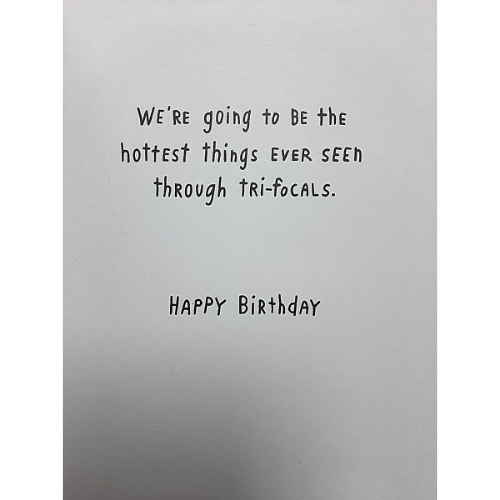 WE'RE going to BE the
hottest things EVER SEEN
through TRI-foCALS.
HAPPY BiRthdAY